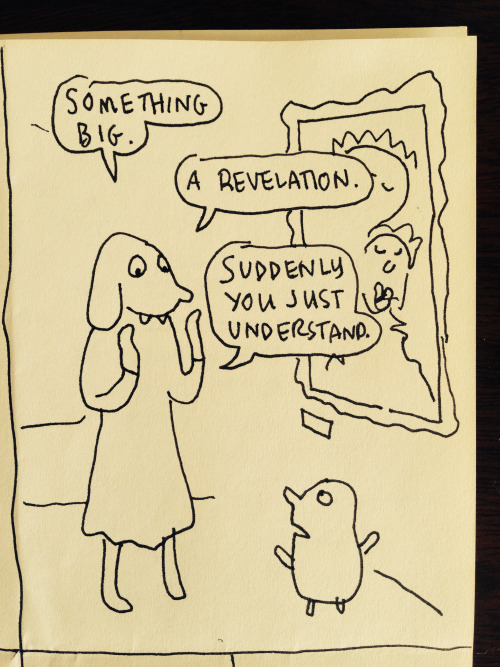 SOMETHING
BIG.
A REVELATION.
SUDDENLY
YOU JUST
UNDERSTAND.